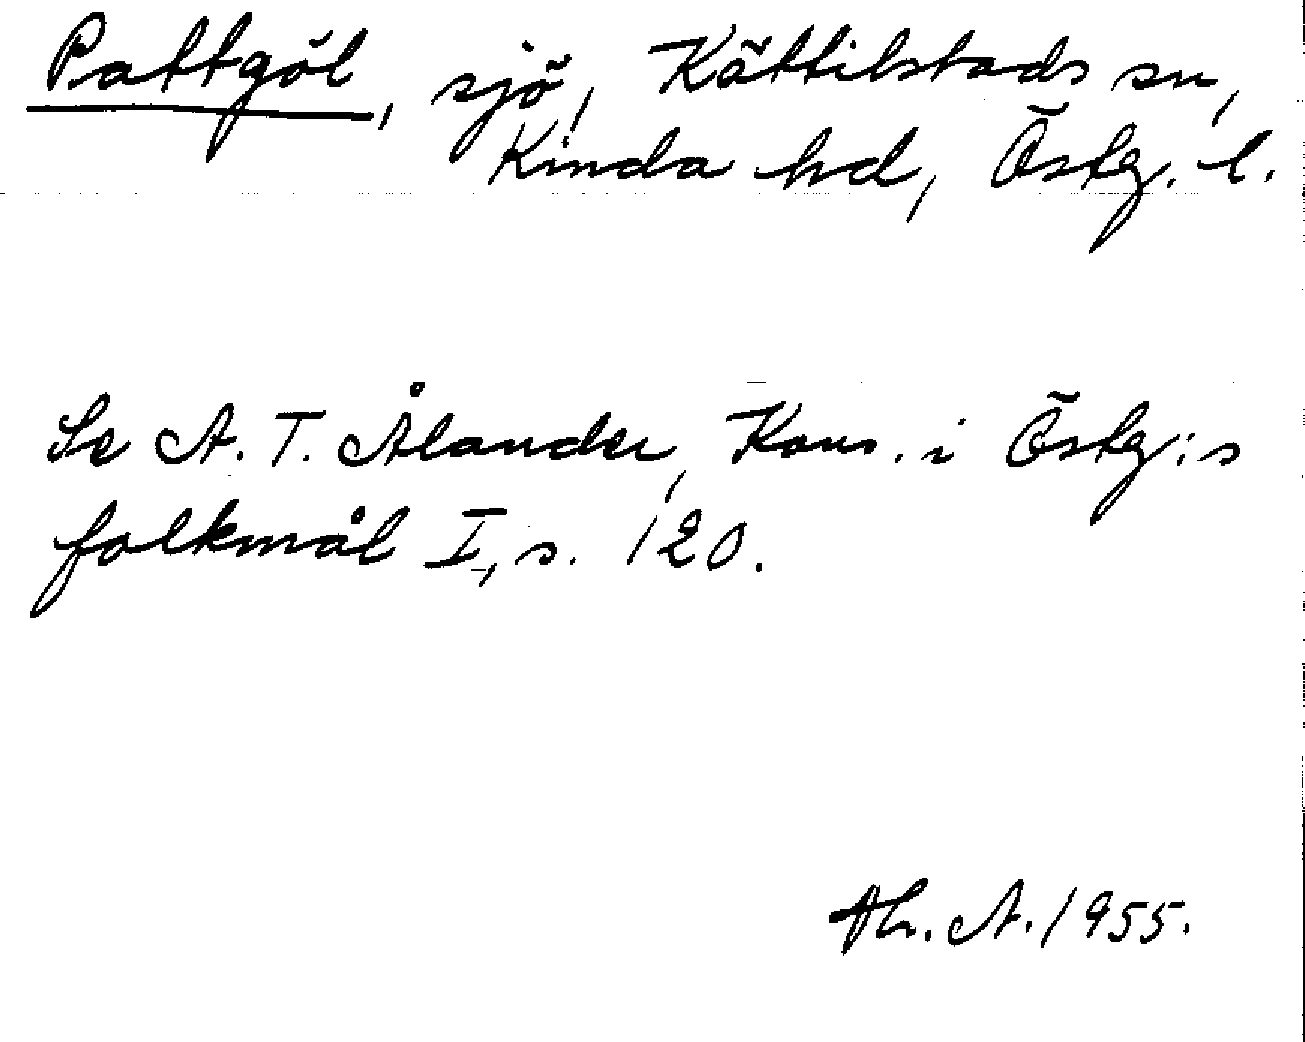 Pattgöl, sjö, Kättilstads sn,
Kinda hd, Östg. l.
Se A. T. Ålander, Kons. i Östg:s
folkmål I, s. 120.
Th. A. 1955.